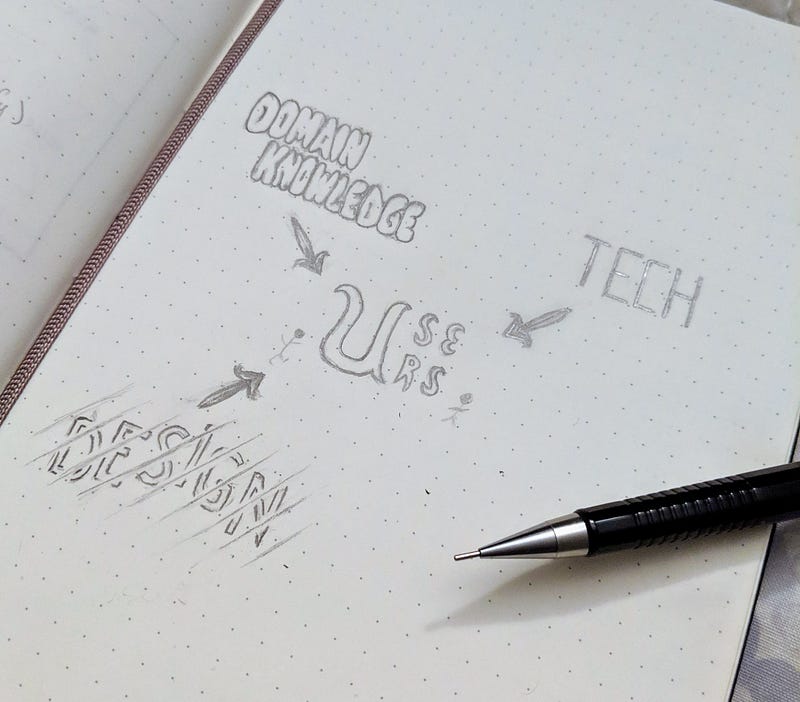 DOMAIN
KNOWLEDGE
TECH
USE
RS
DESIGN